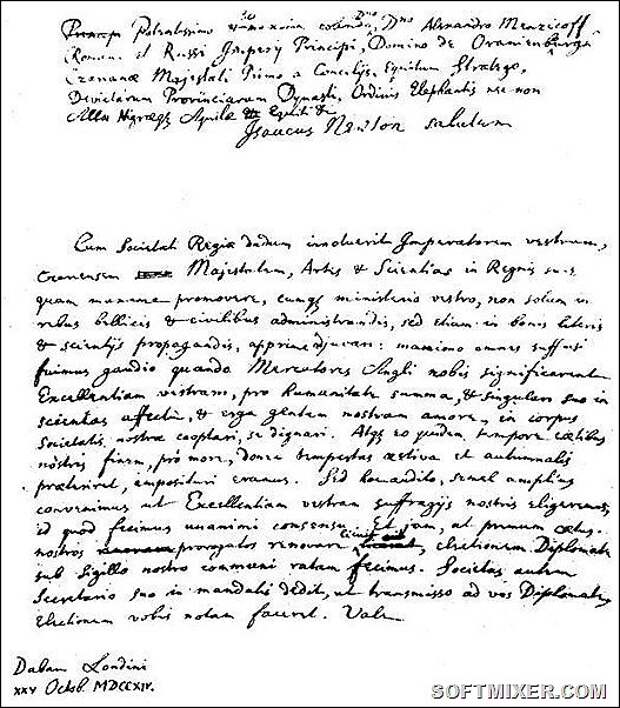 Potentissimo
Dno Alexandro Menzicoff
Romani et Russi Imperij Principi, Domino de Oranienburg
Czareanæ Majestati Primo a Concilijs, Equitum Stratego,
Devictarum Provinciarum Dynasti, Ordinis Elephantis nec non
Aquilæ Equiti &c
Isaacus Newton salutem
Cum Societati Regiæ dudum innotuerit Imperatorem vestrum,
Majestatem, Artes & Scientias in Regnis suis
quam maxime promovere, eumqꝫ ministerio vestro, non solum in
rebus bellicis & civilibus administrandis, sed etiam in bonis literis
& scientijs propagandis, apprime adjuvari: maximo omnes suffusi
fuimus gaudio quando Mercatores Angli nobis significarunt
Excellentiam vestram, pro humanitate summa, & singulari suo in
scientias affectu, & erga gentem nostram amore, in corpus
Societatis nostræ cooptari, se dignari. Atqꝫ eo quidem tempore cœtibus
nostris finem, pro more, donec tempestas æstiva et autumnalis
præteriret, imposituri eramus. Sed hoc audito, semel amplius
convenimus ut Excellentiam vestram suffragijs nostris eligeremus,
id quod fecimus unanimi consensu. Et jam, ut primum cœtus
nostros prorogatos renovare licuit, electionem Diplomate
sub sigillo nostro communi ratam fecimus. Societas autem
Secretario suo in mandatis dedit, ut transmisso ad vos Diplomate,
Electionem vobis notam faceret. Vale
Dabam Londini
XXV Octob. MDCCXIV.
SOFTMIXER.COM